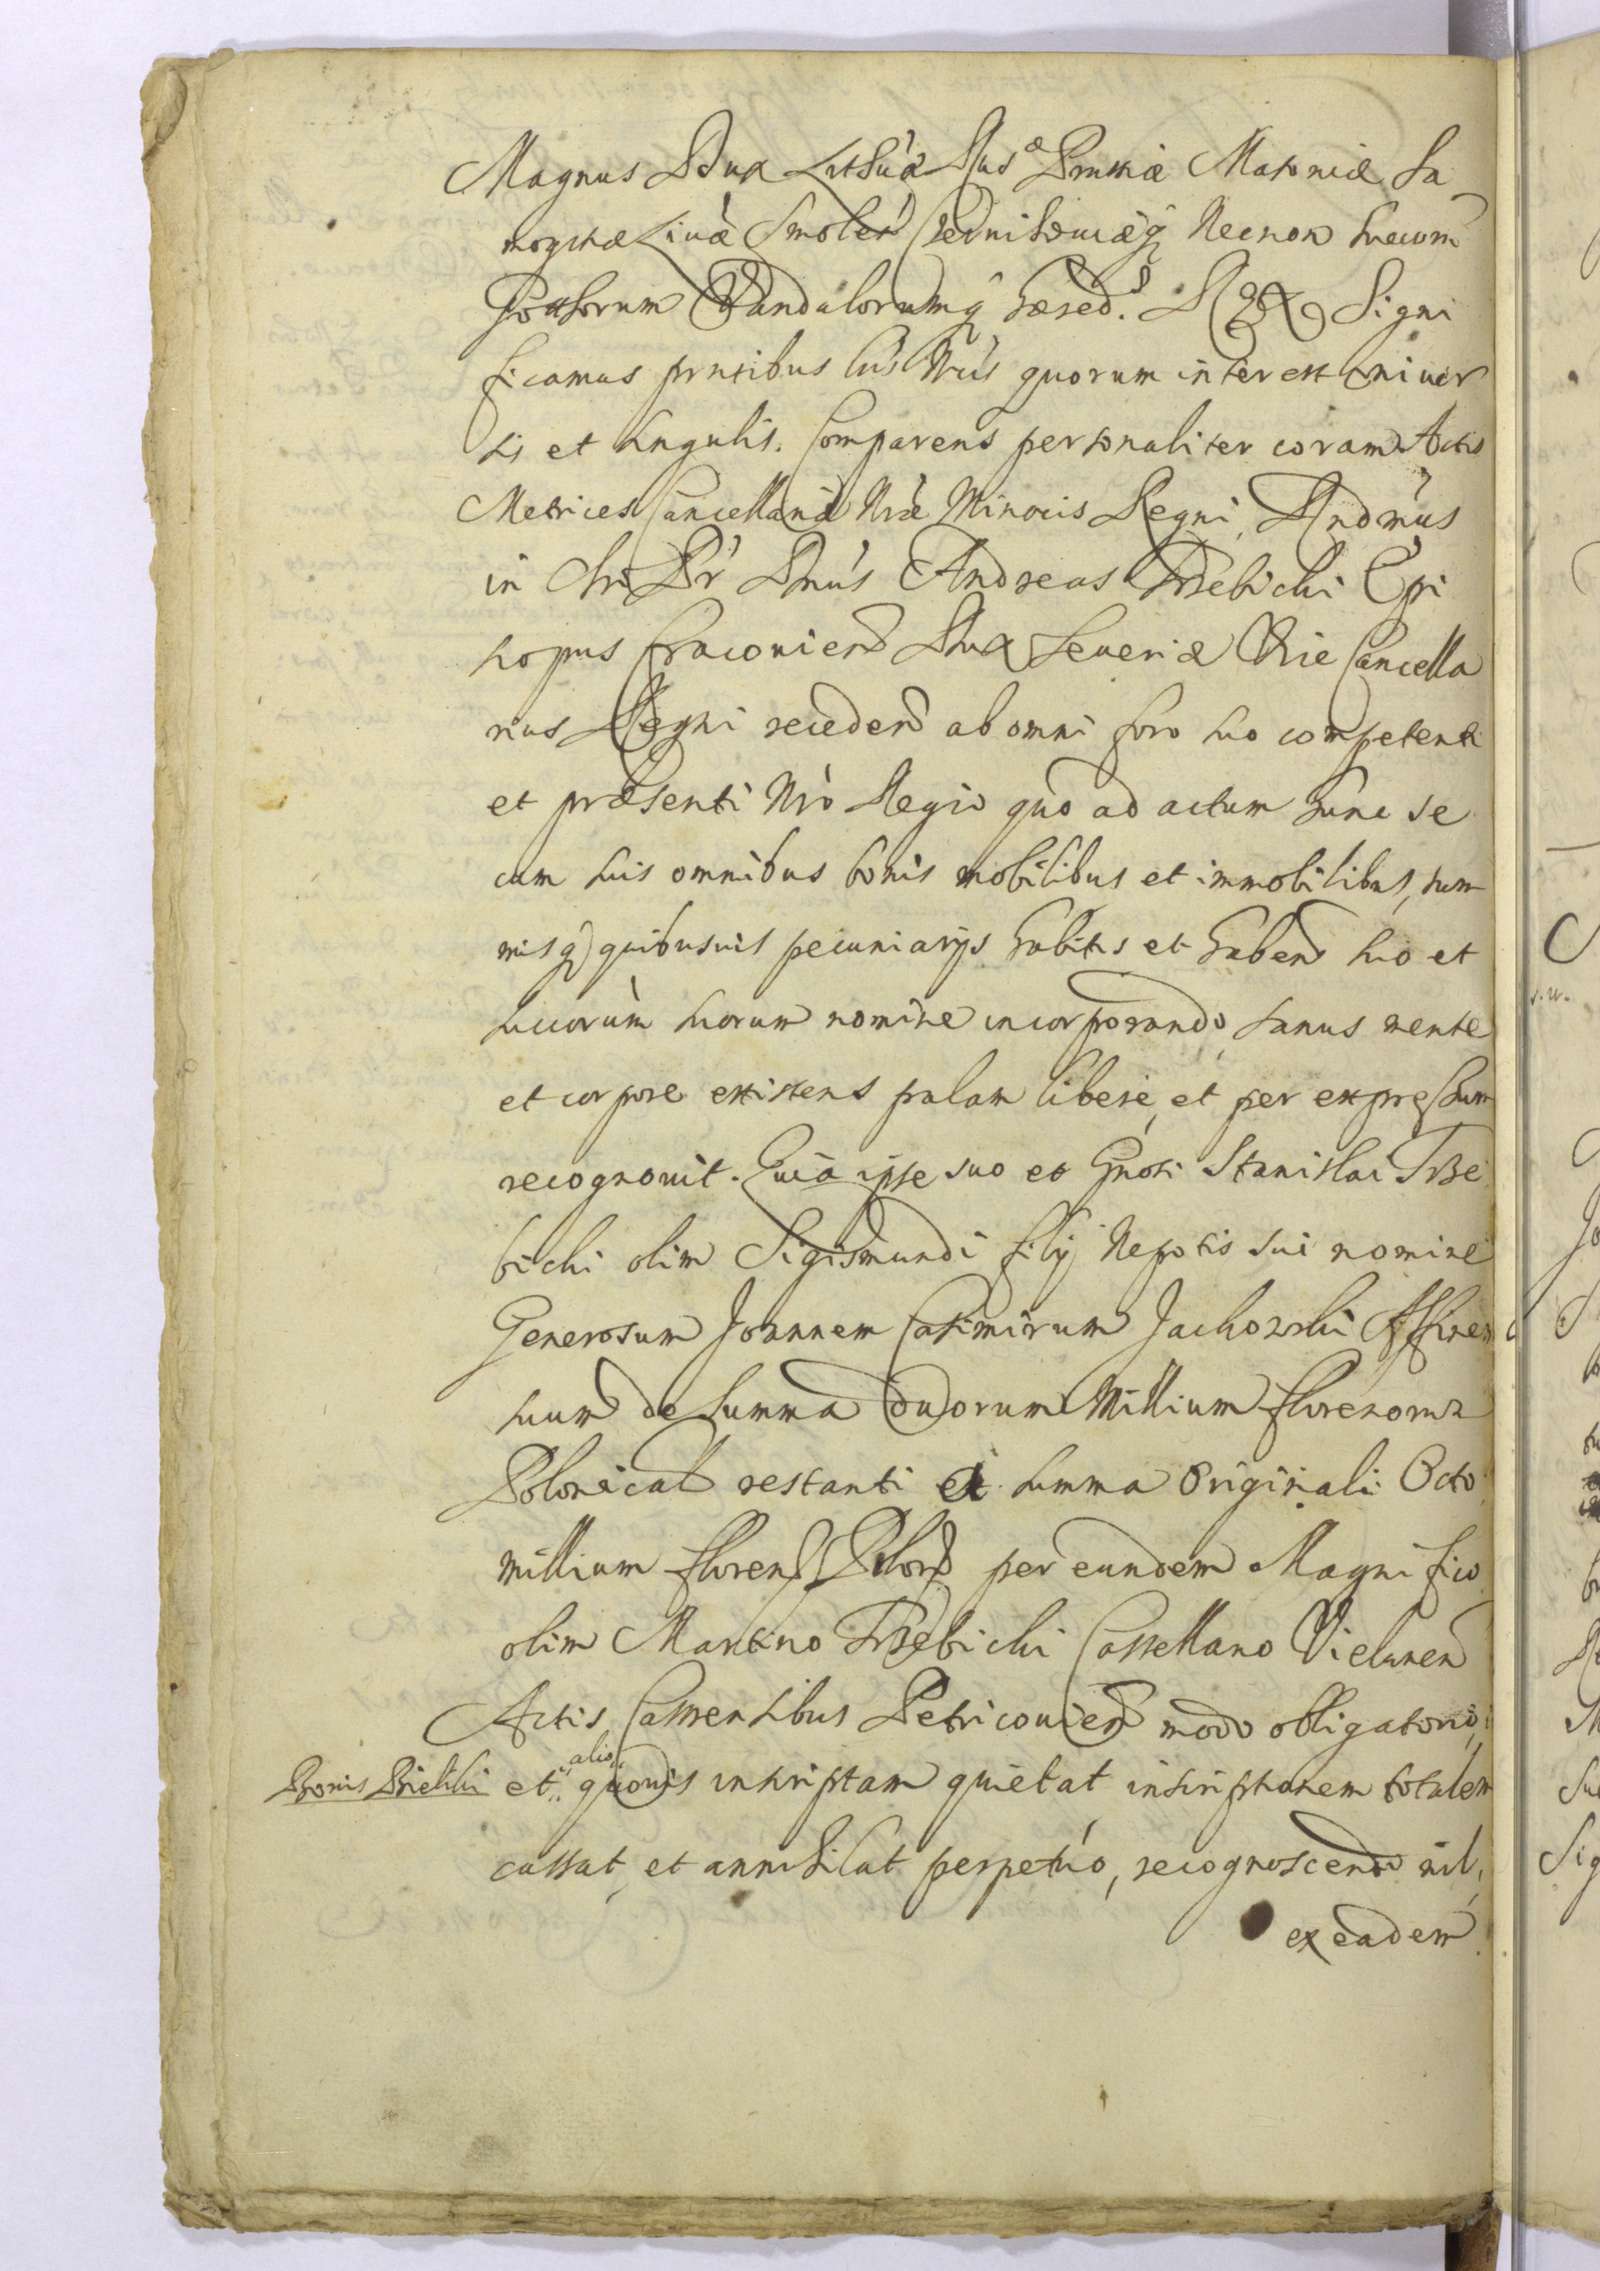 Magnus Dux Lithuã Rusæ Prussiæ Masoviæ Sa
mogitiæ Livæ Smolen Czernihoviæq Necnon Suecorũ
Gotthorum Vandalorumq hæred. REX Signi
ficamus prntibus Lris Nris quorum interest univer
sis et singulis. Comparens personaliter coram Actis
Metrices Cancellariæ Nræ Minoris Regni, Rndmus
in Chri Pr Dnus Andreas Trzebicki Epi
scopus Cracovien Dux Severiæ Vice Cancella
rius Regni receden ab omni foro suo competenti
et præsenti Nro Regio quo ad actum hunc se
cum suis omnibus bonis mobilibus et immobilibus, sum
misq quibusvis pecuniarijs habitis et haben suo et
successorum suorum nomine incorporando, sanus mente
et corpore existens palam libere, et per expressum
recognovit. Quia ipse suo et Gnosi Stanislai Trze
bicki olim Sigismundi filij Nepotis sui nomine
Generosum Joannem Casimirum Jackowski Affinem
suum de summa duorum Millium florenorum
Polonical restanti ex summa Originali Octo
millium floren Polon per eundem Magnifico
olim Martino Trzebicki Castellano Vielunen
Actis Castrensibus Petricovien modo obligatorio,
Bonis Bielski et alio quovis inscriptam quietat inscriptionem totalem
cassat, et annihilat perpetuo, recognoscendo nil,
ex eadem